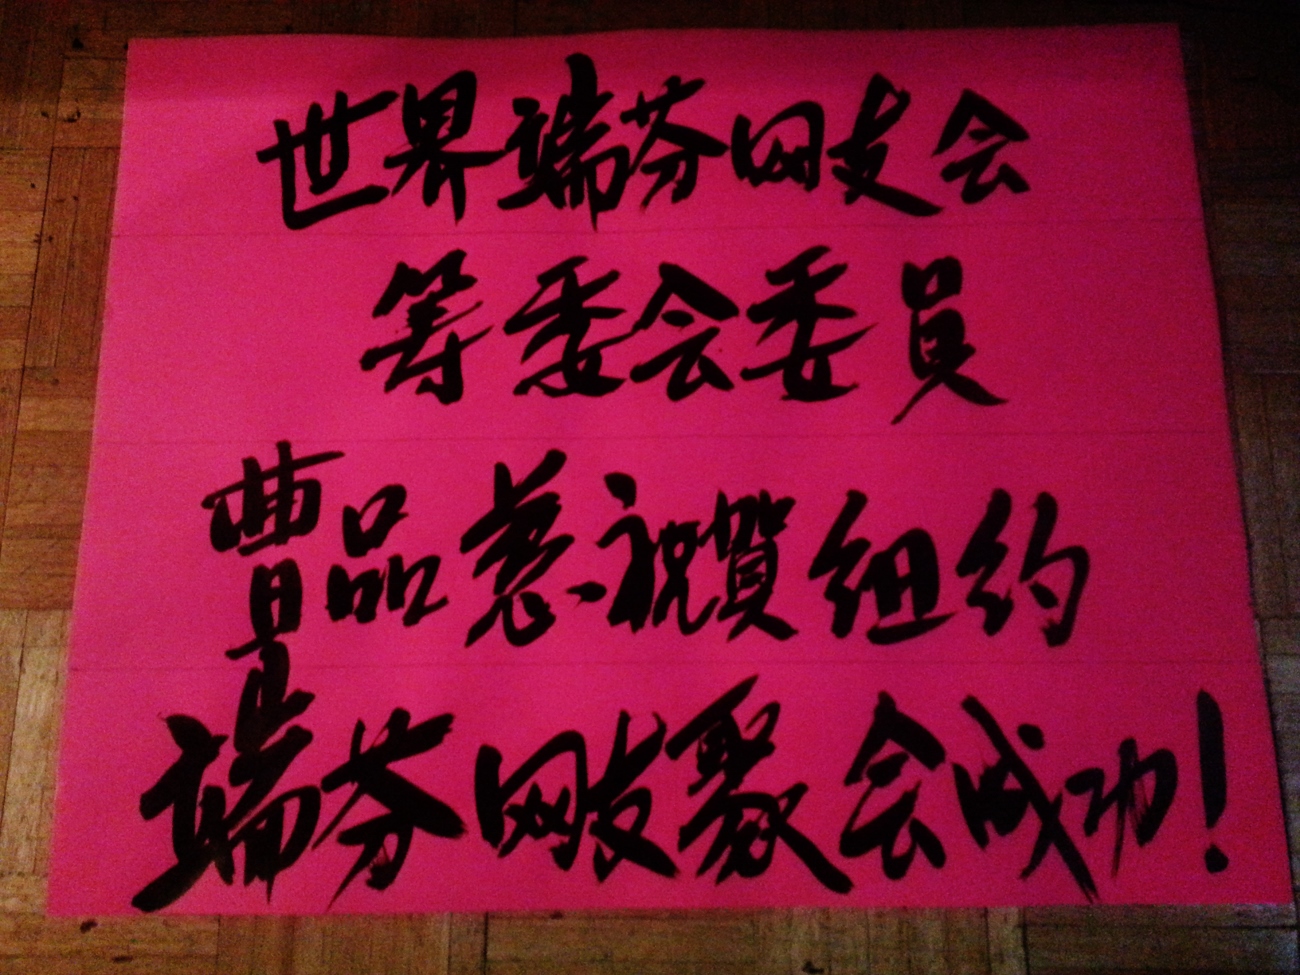 世界端芬网友会
筹委会委員
曹品 祝賀纽约
端芬网友聚会成功！